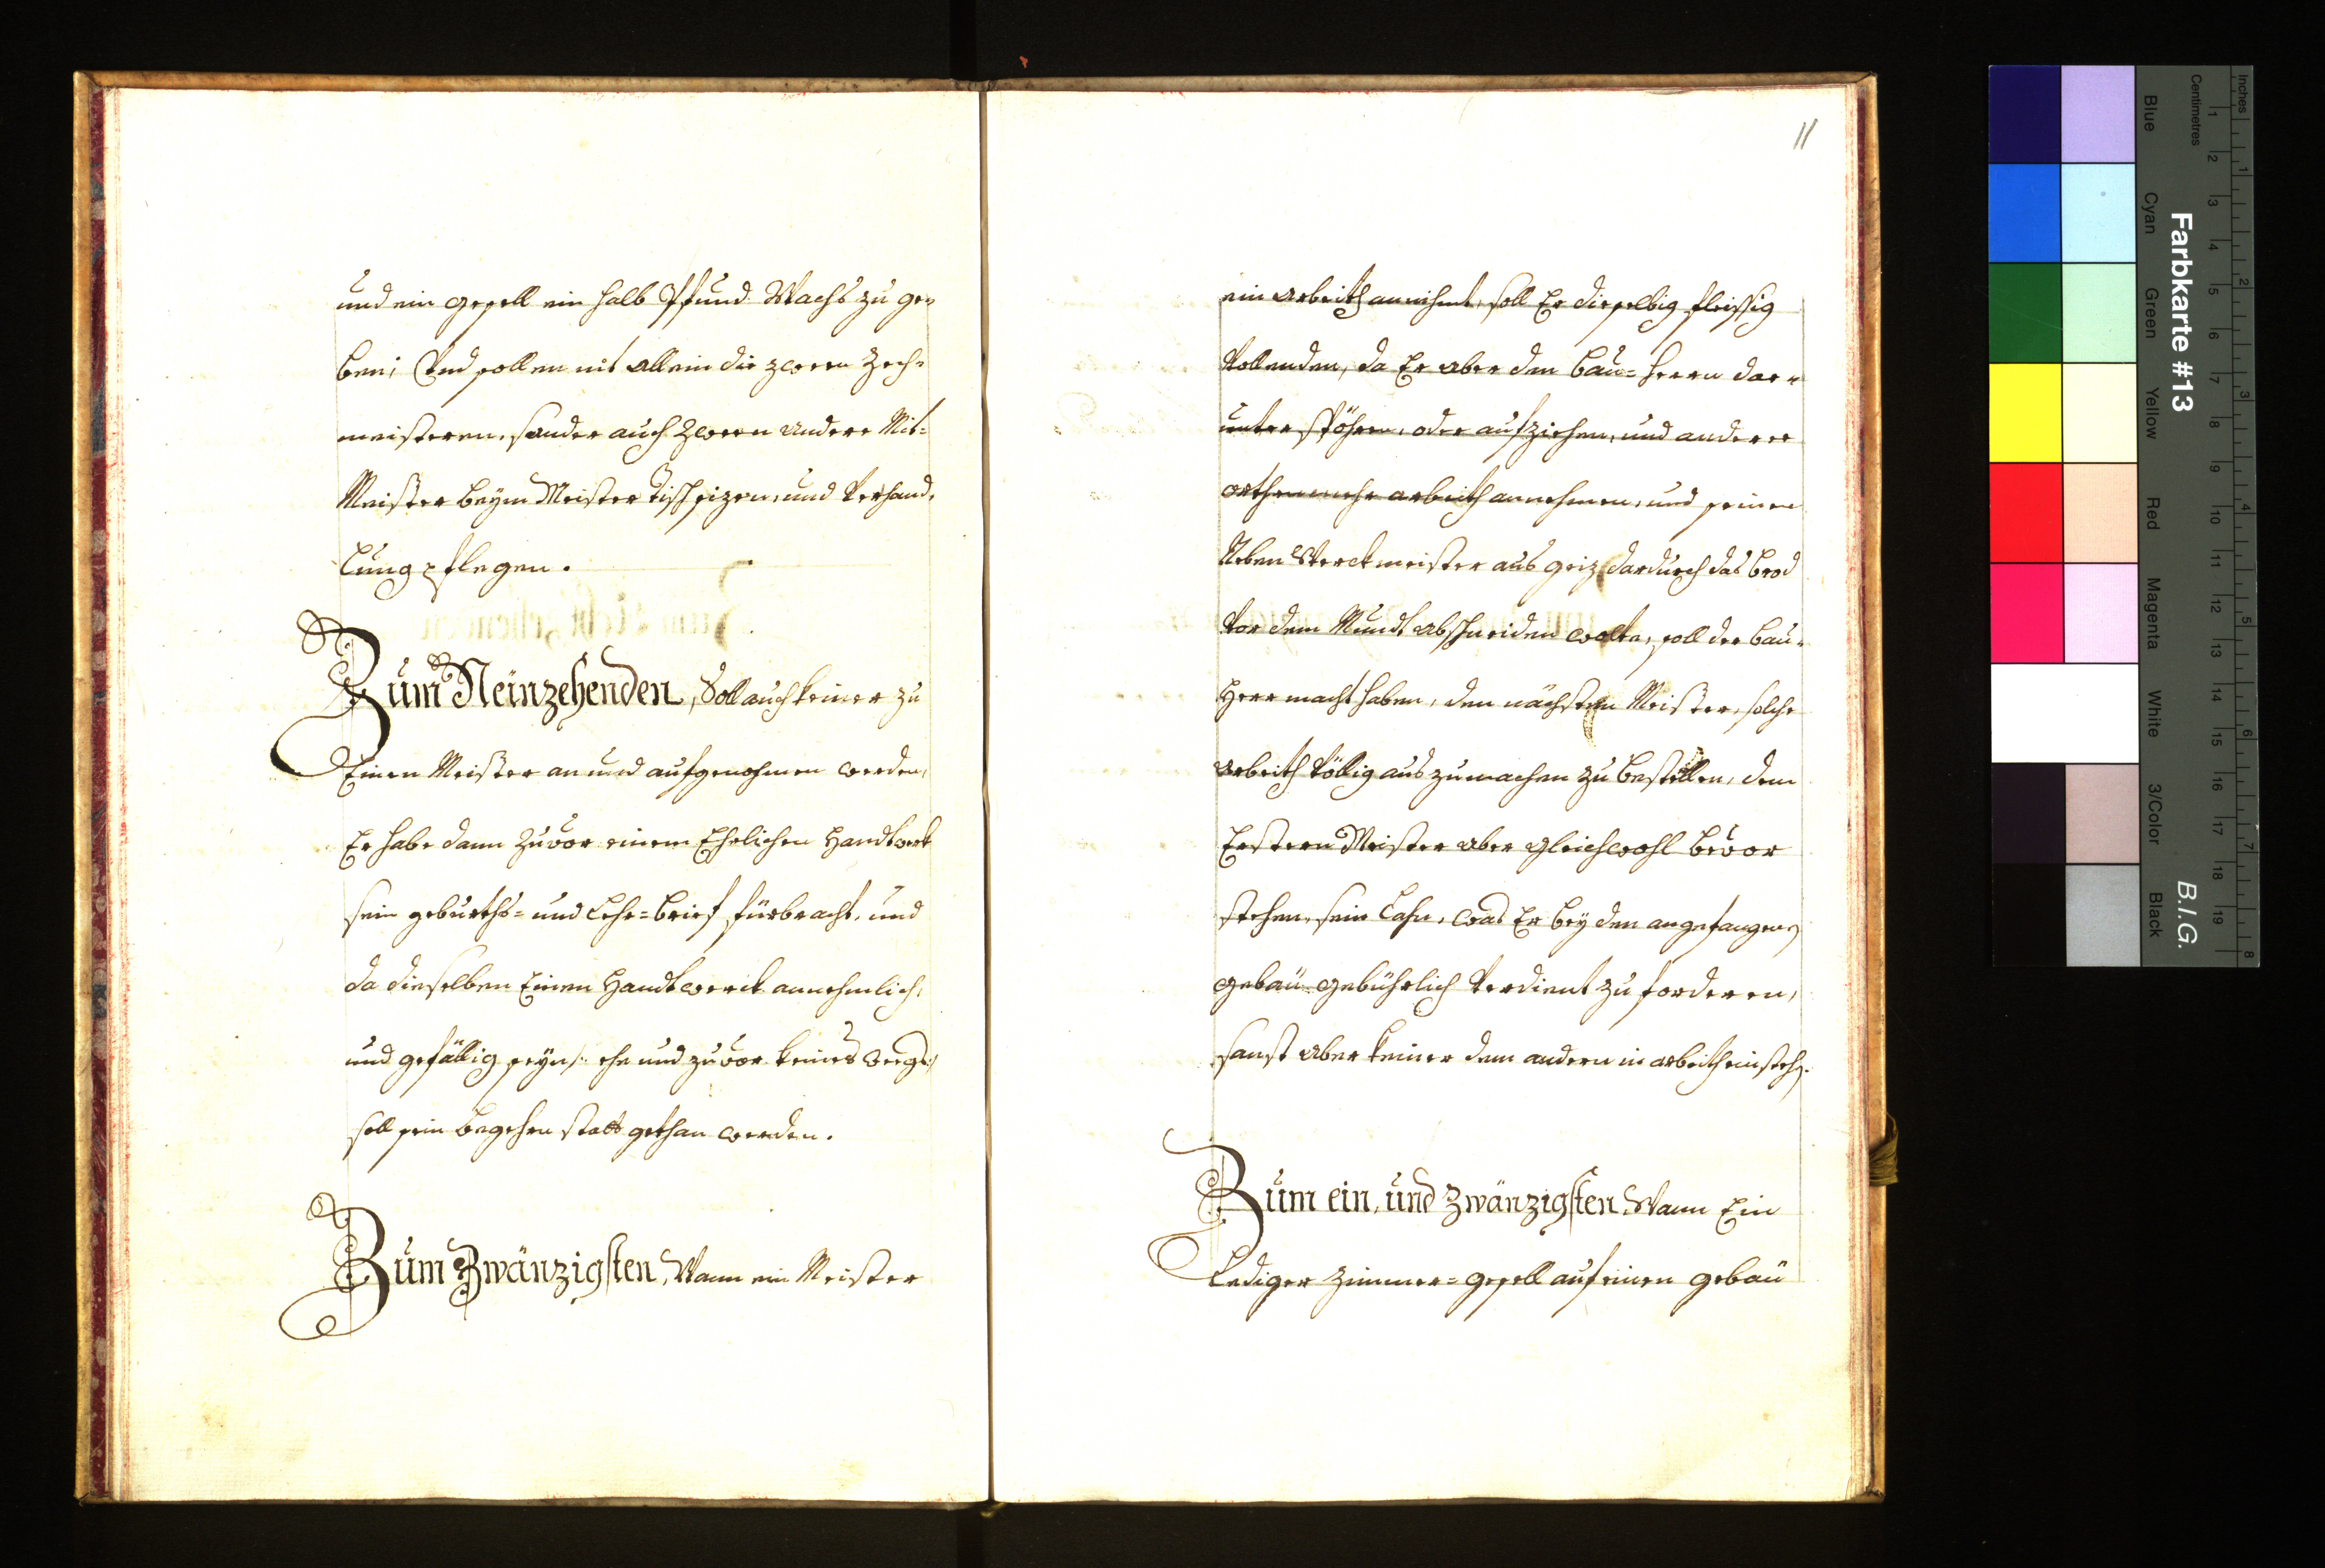 und ein gesell ein halb Pfund Wachs zu ge=
ben; Und sollen nit allein die zween Zech=
meisteren, sonder auch zween andere Mit=
Meister beym Meister Tisch sizen, und Verhand=
lung pflegen.
Zum Neinzehenden, Soll auch keiner zu
Einen Meister an und aufgenohmen werden,
Er habe dann zuvor einem Ehrlichen Handwerk
sein geburths= und Lehr=brief fürbracht, und
da dieselben Einen Handtwerck annehmlich,
und gefällig seyn, ehe und zuvor keines weegs
soll sein begehren statt gethan werden.
Zum Zwänzigsten, Wann ein Meister
11
ein arbeith annihmt, soll Er dieselbig fleissig
Vollenden, da Er aber den Bau=herrn dar=
unter stöhren, oder aufziehen, und anderer
orthen mehr arbeith annehmen, und seinen
Neben Werckmeister aus geiz dardurch das brod
Vor dem Mundt abschneiden wolte, soll der bau=
Herr macht haben, den nächsten Meister, solche
arbeith Völlig auszumachen zu bestellen, dem
Erstern Meister aber gleichwohl bevor
stehen, sein Lohn, was Er bey den angefangen
gebäu gebührlich Verdient zu forderen,
sonst aber keiner dem andern in arbeith einsteh.
Zum ein, und zwänzigsten Wann Ein
Lediger Zimmer=gesell auf einen gebäu
Farbkarte #13
B.I.G.
Inches
Centimetres
1 2 3 4 5 6 7 8 9 10 11 12 13 14 15 16 17 18 19
1 2 3 4 5 6 7 8
Blue
Cyan
Green
Yellow
Red
Magenta
White
3/Color
Black